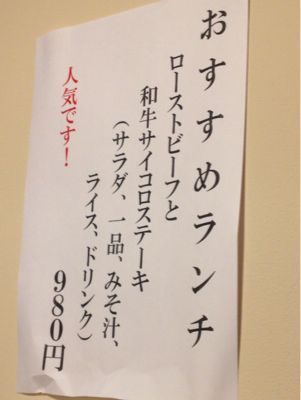 おすすめランチ
ローストビーフと
和牛サイコロステーキ
（サラダ、一品、みそ汁、
ライス、ドリンク）
980円
人気です！